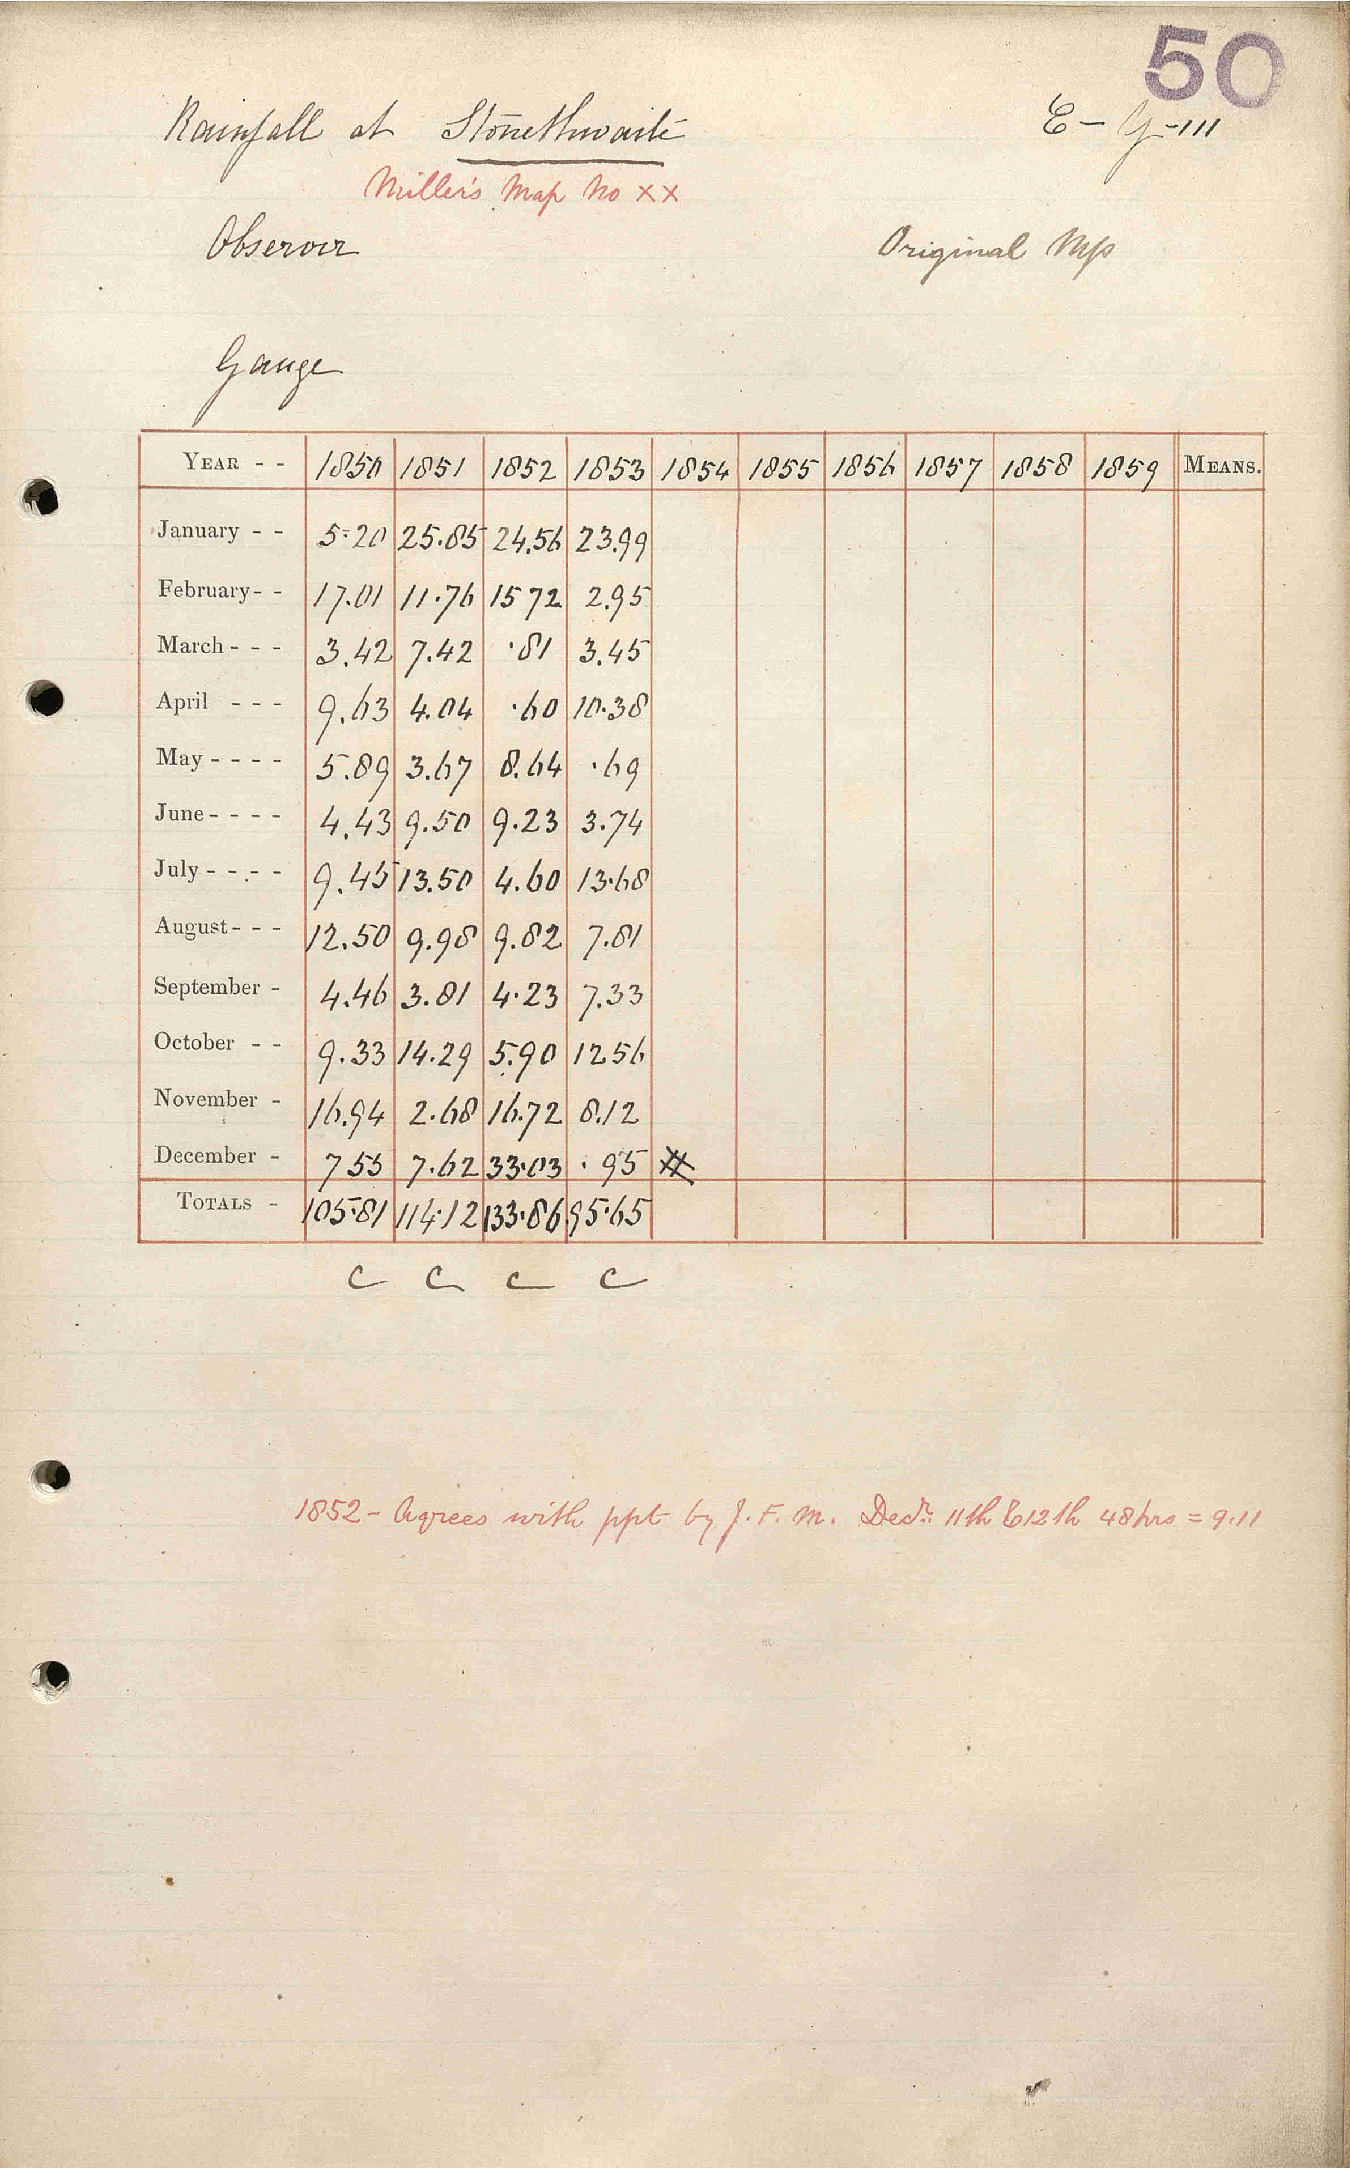 50
Rainfall at Stonethwaite
E - y - 111
Miller's Map No XX
Observer
Original Mss
Gauge
YEAR - - 1850 1851 1852 1853 1854 1855 1856 1857 1858 1859 MEANS.
January - - 5.20 25.85 24.56 23.99
February - - 17.01 11.76 15 72 2.95
March - - - 3.42 7.42 .81 3.45
April - - - 9.63 4.04 .60 10.38
May - - - - 5.89 3.67 8.64 .69
June - - - - 4.43 9.50 9.23 3.74
July - - - - 9.45 13.50 4.60 13.68
August - - - 12.50 9.98 9.82 7.81
September - 4.46 3.81 4.23 7.33
October - - 9.33 14.29 5.90 12 56
November - 16.94 2.68 16.72 8.12
December - 7 55 7.62 33.03 .95 #
TOTALS - 105.81 114.12 133.86 95.65
C C C C
1852 - Agrees with ppt by J. F. M. Decr. 11th & 12th 48 hrs = 9.11